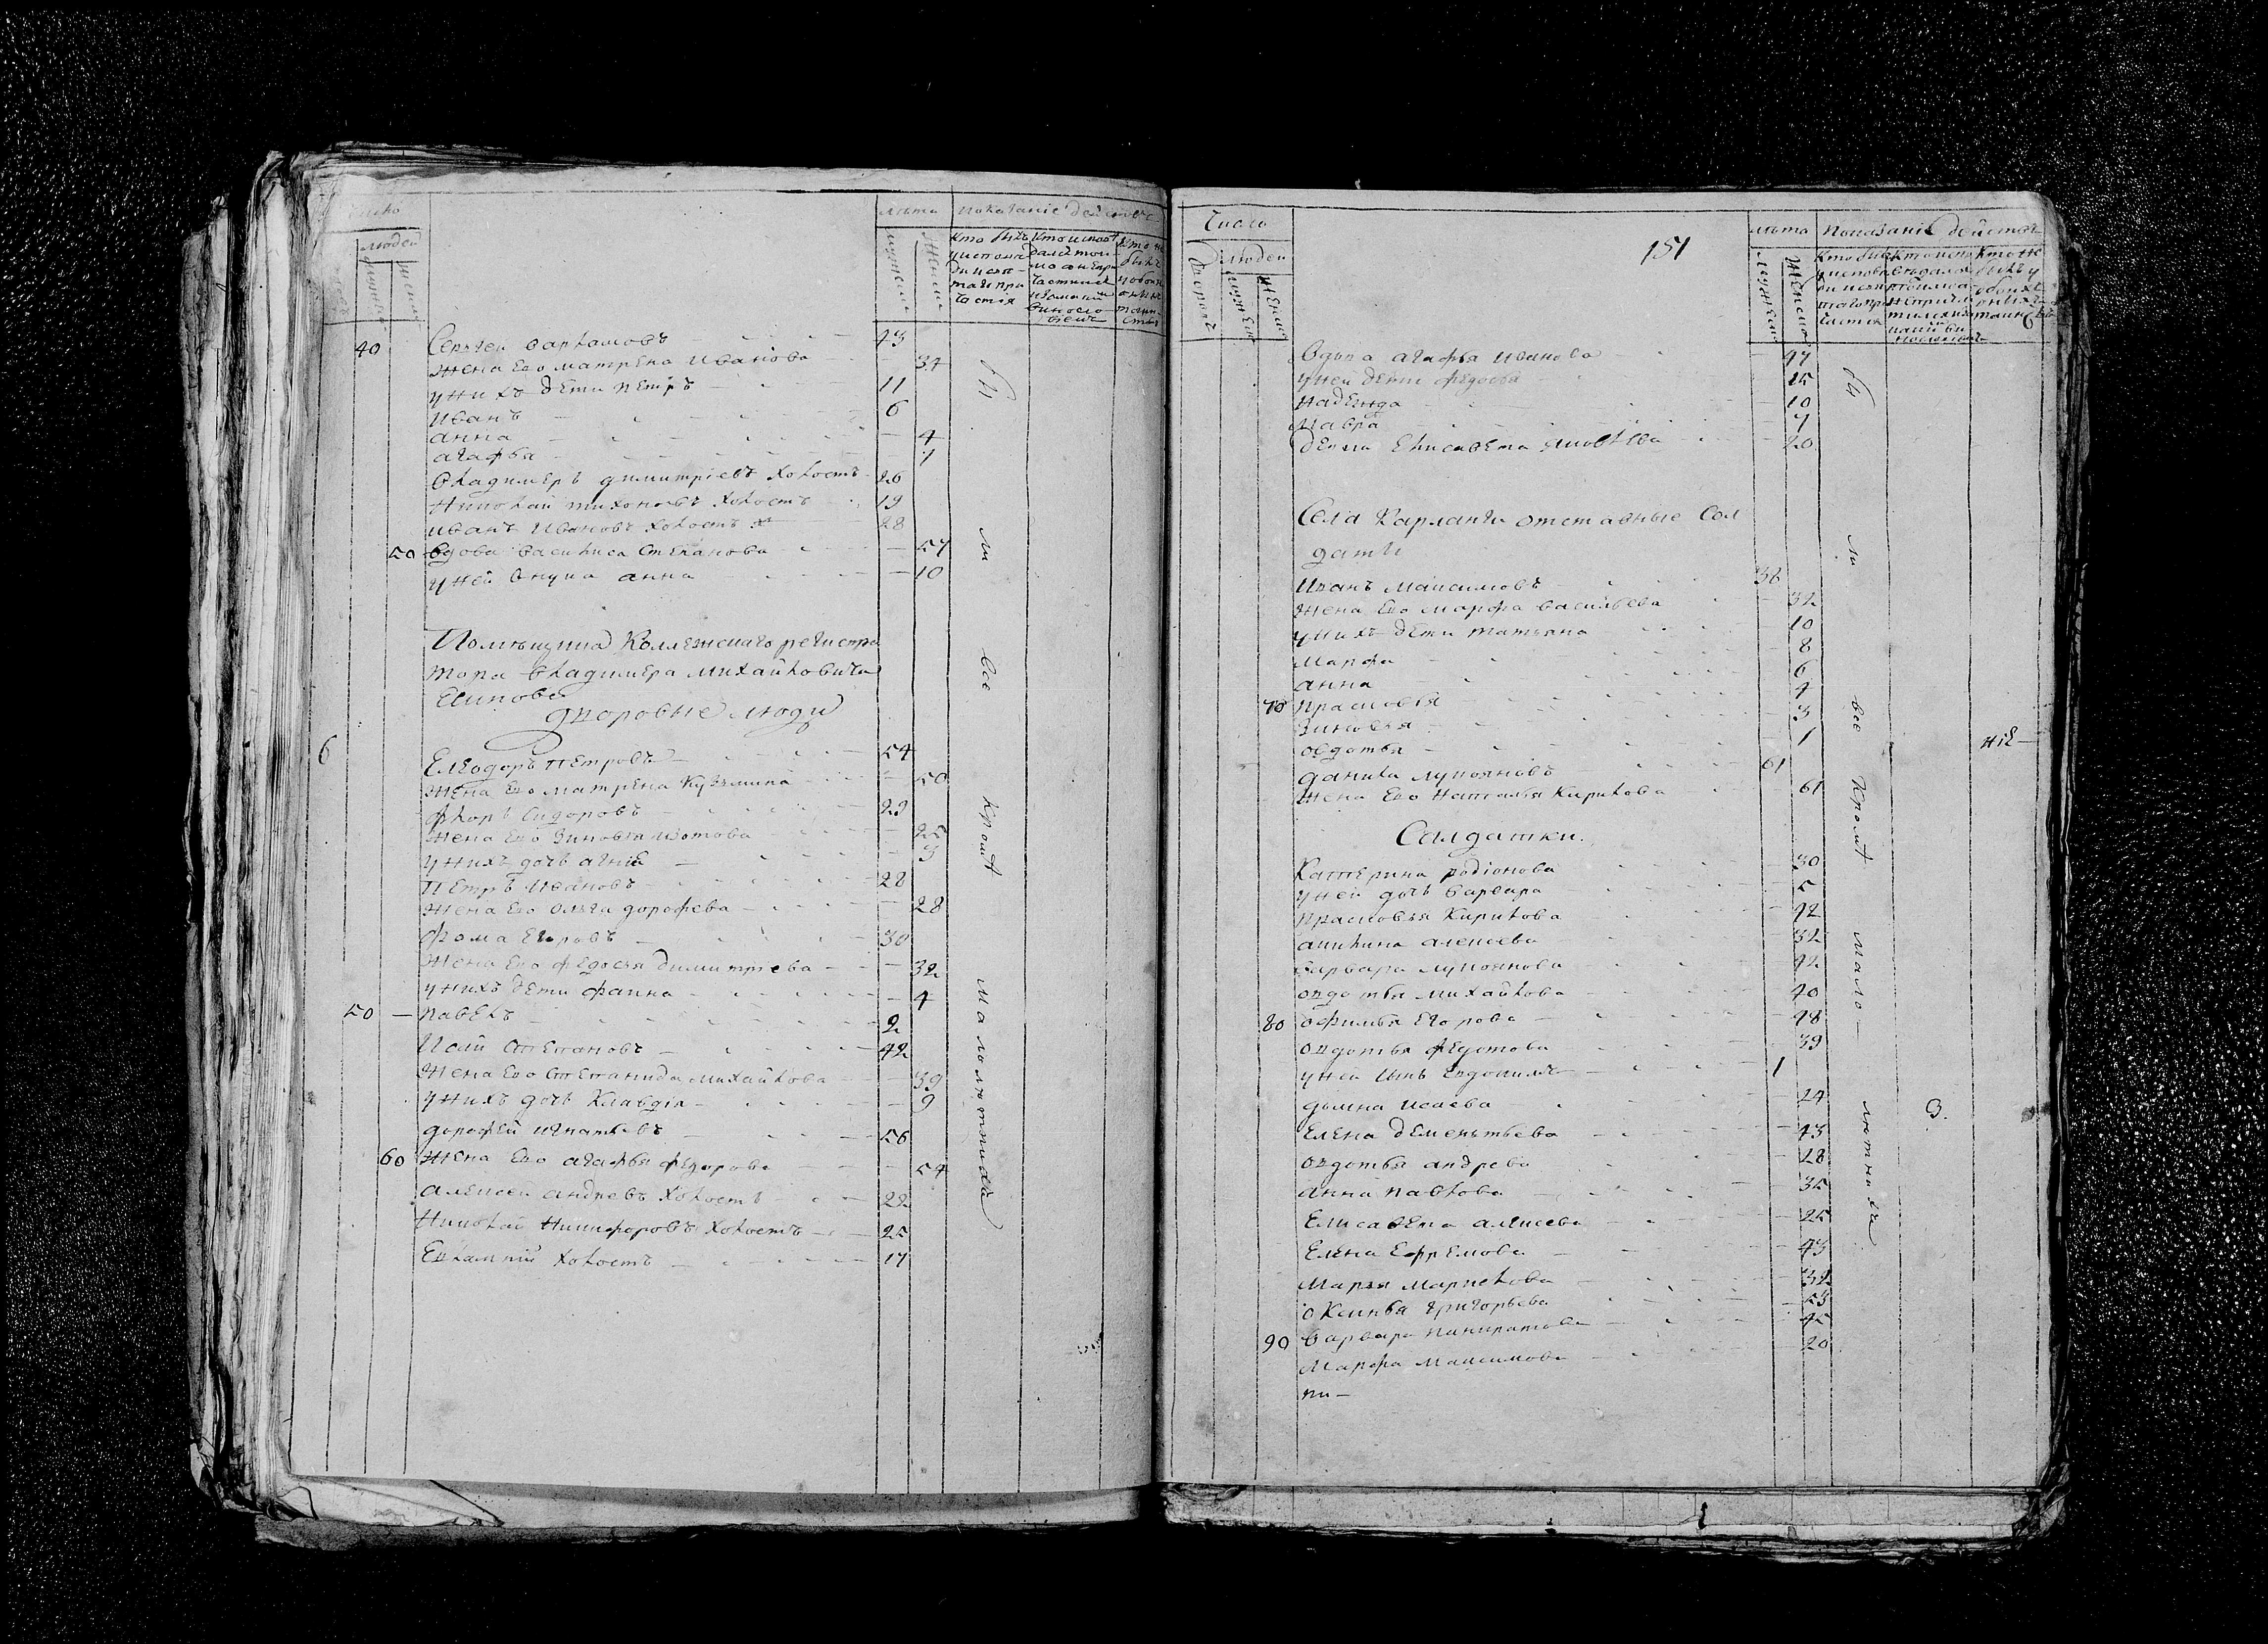 Число
людей
лѣта
показанiе действа
40 Сергеи варламовъ 43
жена Его матрена иванова 34
у нихъ дети петръ 11
иванъ 6
анна 4
агафья 1
владимеръ димитрiевъ холостъ 26
николаи тихоновъ холостъ 19
иванъ ивановъ холостъ 28
50 вдова василиса степанова 57
у ней внука анна 10
Помѣщика Коллежскаго регистра
тора владимера михайловича
Есипова
дворовые люди
6 Елеодоръ петровъ 54
жена Его матрена Кузьмина 50
флоръ Сидоровъ 22
жена Его Зиновья изотова 25
у нихъ дочь агнiя 3
петръ ивановъ 28
жена Его ольга дорофева 28
фома Егоровъ 30
жена Его федосья димитрiева 32
у нихъ дети фаина 4
50 павелъ 2
Исай Степановъ 42
жена Его Степанида михайлова 39
у нихъ дочь Клавдiя 9
дорофей игнатьевъ 56
60 жена Его агафья федорова 54
алексеи андревъ холостъ 22
николай никифоровъ холостъ 25
Евлампiй холостъ 17
бы ли все кромѣ малолѣтныхъ
Число
людей
151
лѣта
Показанiе действа
вдова агафья иванова 47
у ней дети федосья 15
надежда 10
мавра 7
девка Елисавета яковлева 20
Села Карланги отставные Сол
даты
Иванъ максимовъ 36
жена Его марфа васильева 32
у нихъ дети татьяна 10
марфа 8
анна 6
70 прасковья 4
Зиновья 3
овдотья 1
данила лукояновъ 61
жена Его наталья Кирилова 61
Салдатки.
Катерина родiонова 30
у ней дочь варвара 5
прасковья Кирилова 42
акилина алексева 32
варвара лукоянова 42
овдотья михайлова 40
80 офимья Егорова 48
овдотья федотова 39
у ней Сынъ Евдокимъ 1
домна исаева 24
Елена дементьева 43
овдотья андрева 28
анна павлова 35
Елисавета алексева 25
Елена Ефремова 43
марья маркелова 32
оксинья григорьева 53
90 варвара панкратова 45
марфа максимова 20
бы ли все Кромѣ мало—лѣтныхъ